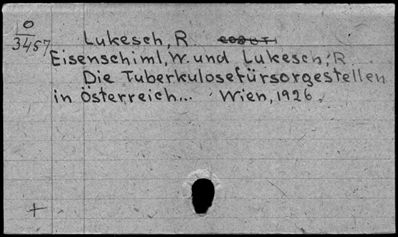 O
3457
Lukesch, R.
Eisenschiml, W. und Lukesch, R.
Die Tuberkulosefürsorgestellen
in Österreich... Wien, 1926.
+